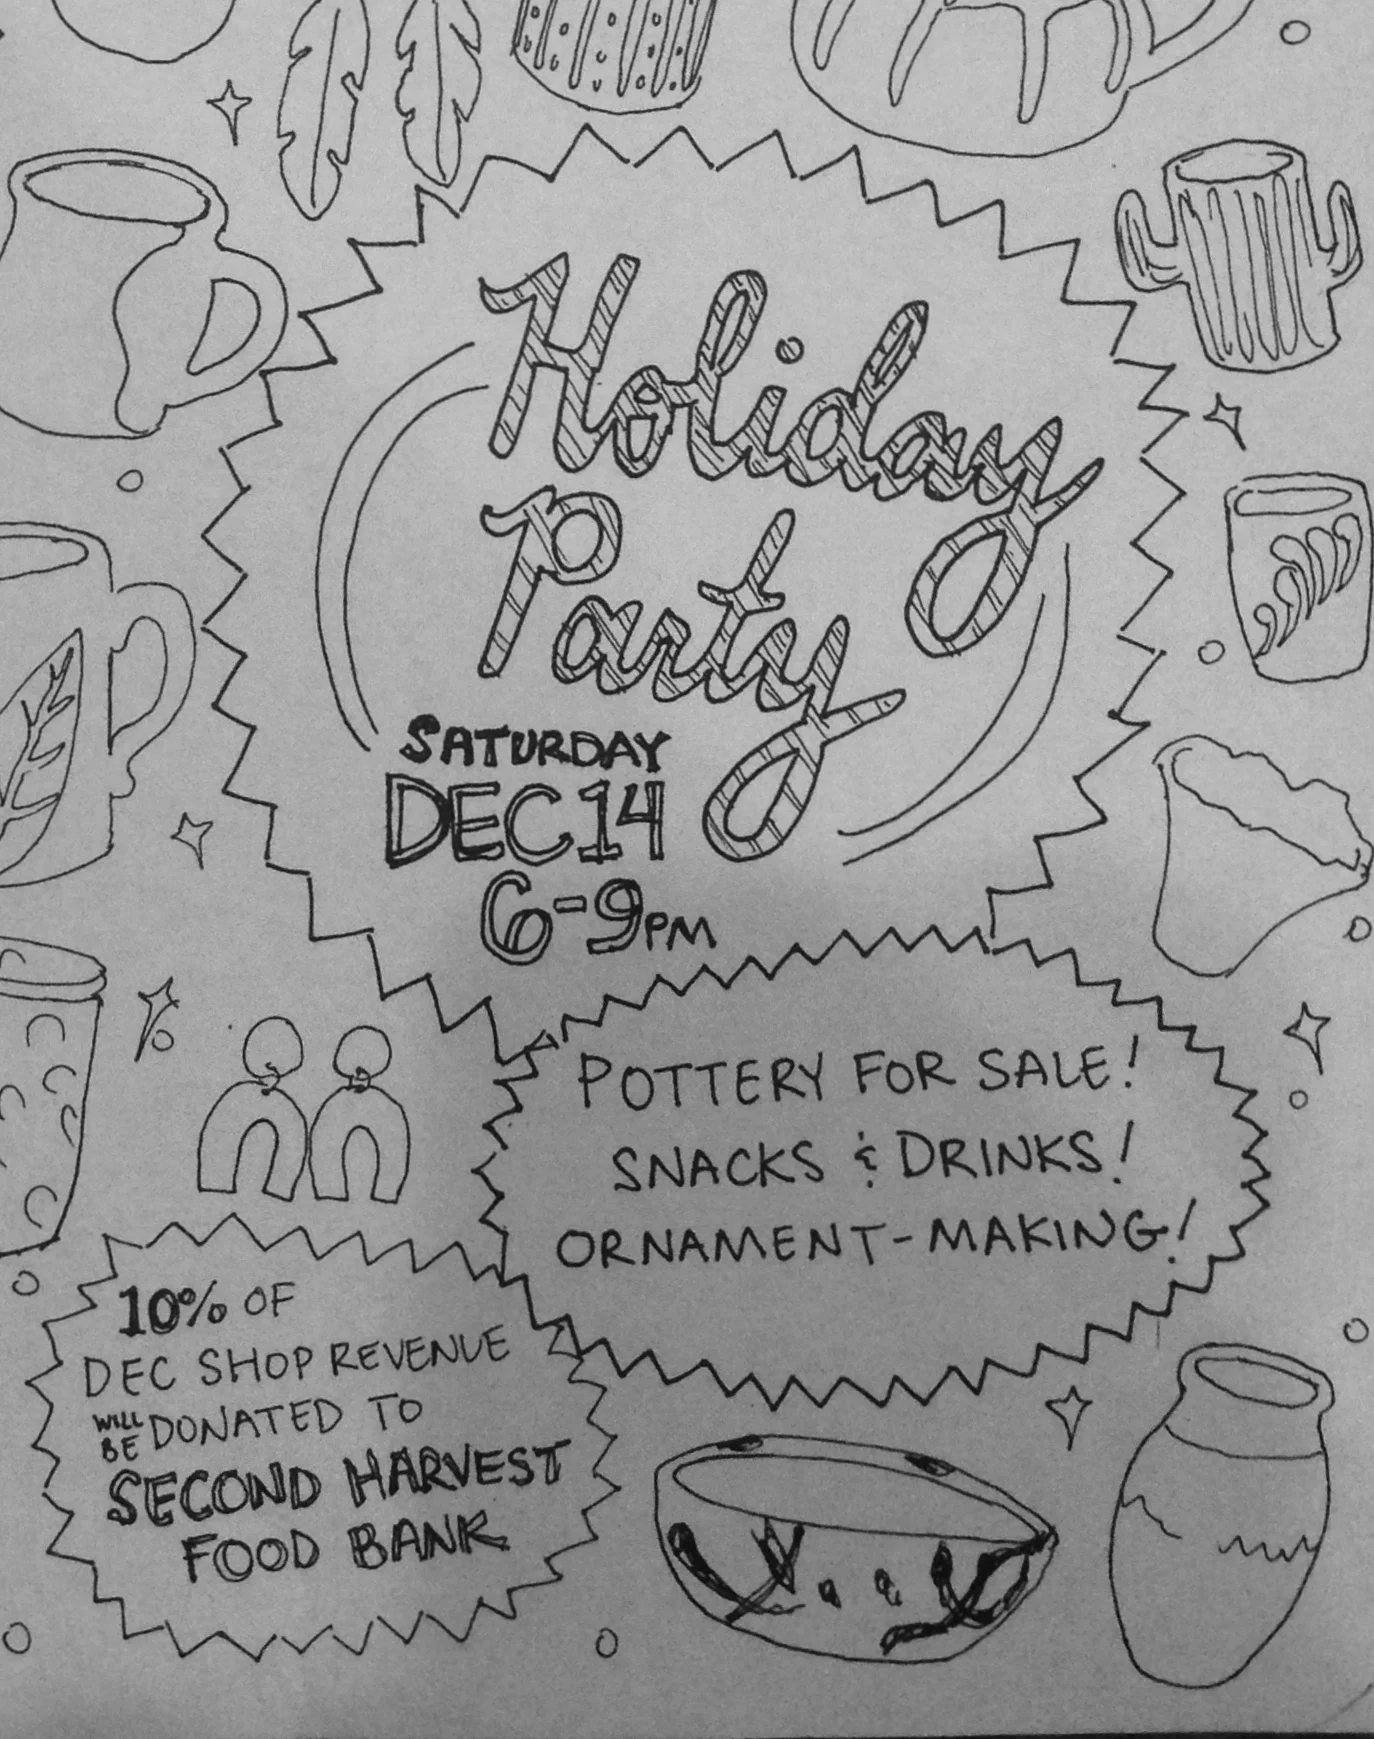 Holiday
Party
SATURDAY
DEC 14
6-9PM
POTTERY FOR SALE!
SNACKS & DRINKS!
ORNAMENT-MAKING!
10% OF
DEC SHOP REVENUE
WILL BE DONATED TO
SECOND HARVEST
FOOD BANK